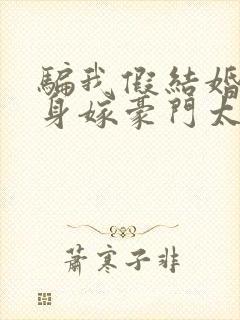 騙我假結婚
身嫁豪門太
蕭寒子非